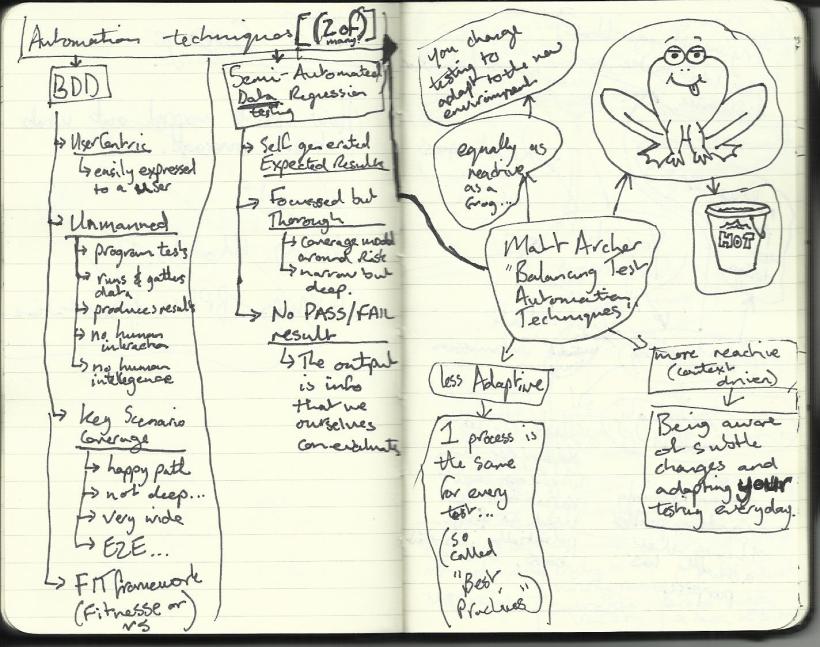 Automation techniques [(2 of many)]
BDD
User Centric
easily expressed
to a user
Unmanned
program tests
runs & gathers
data
produces results
no human
interaction
no human
intelegence
Key Scenario
Coverage
happy path
not deep...
very wide
E2E...
FIT framework
(Fitnesse or
Semi-Automated
Data Regression
testing
Self generated
Expected Results
Focussed but
Thorough
Coverage model
around Risk
narrow but
deep.
No PASS/FAIL
result
The output
is info
that we
ourselves
can evaluate
You change
testing to
adapt to the new
environment
equally as
reactive
as a
frog...
HOT
Matt Archer
"Balancing Test
Automation
Techniques"
less Adaptive
1 process is
the same
for every
test...
(so
called
"Best
Practices")
more reactive
(context
driven)
Being aware
of subtle
changes and
adapting your
testing everyday.